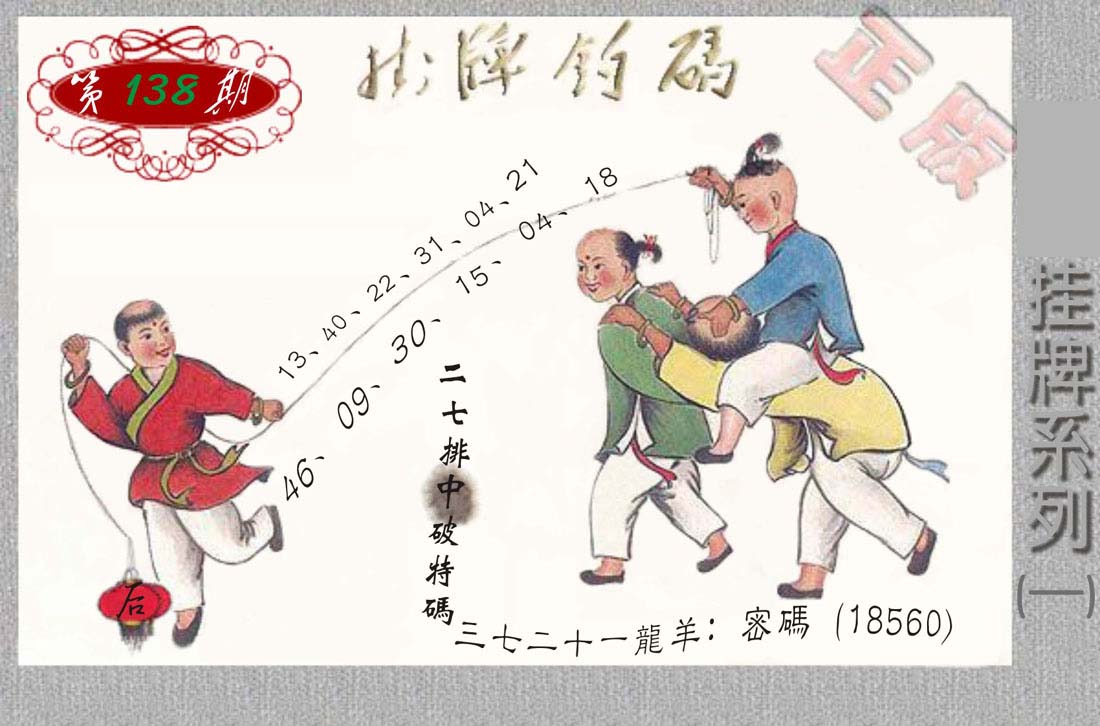 第138期
掛牌釣碼
正版
13、40、22、31、04、21
46、09、30、15、04、18
二七排中破特碼
后
三七二十一龍羊：密碼(18560)
挂牌系列(一)